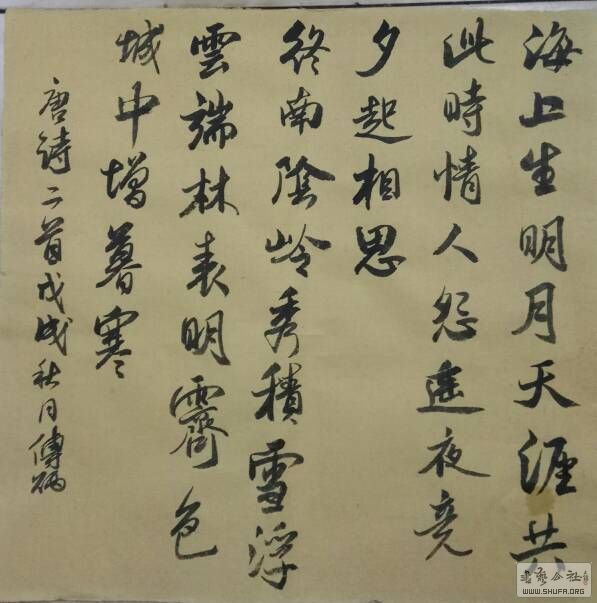 海上生明月天涯共
此時情人怨遥夜竟
夕起相思
终南陰岭秀積雪浮
雲端林表明霽色
城中增暮寒
唐詩二首戊戌秋月傅炳
書藝公社
WWW.SHUFA.ORG